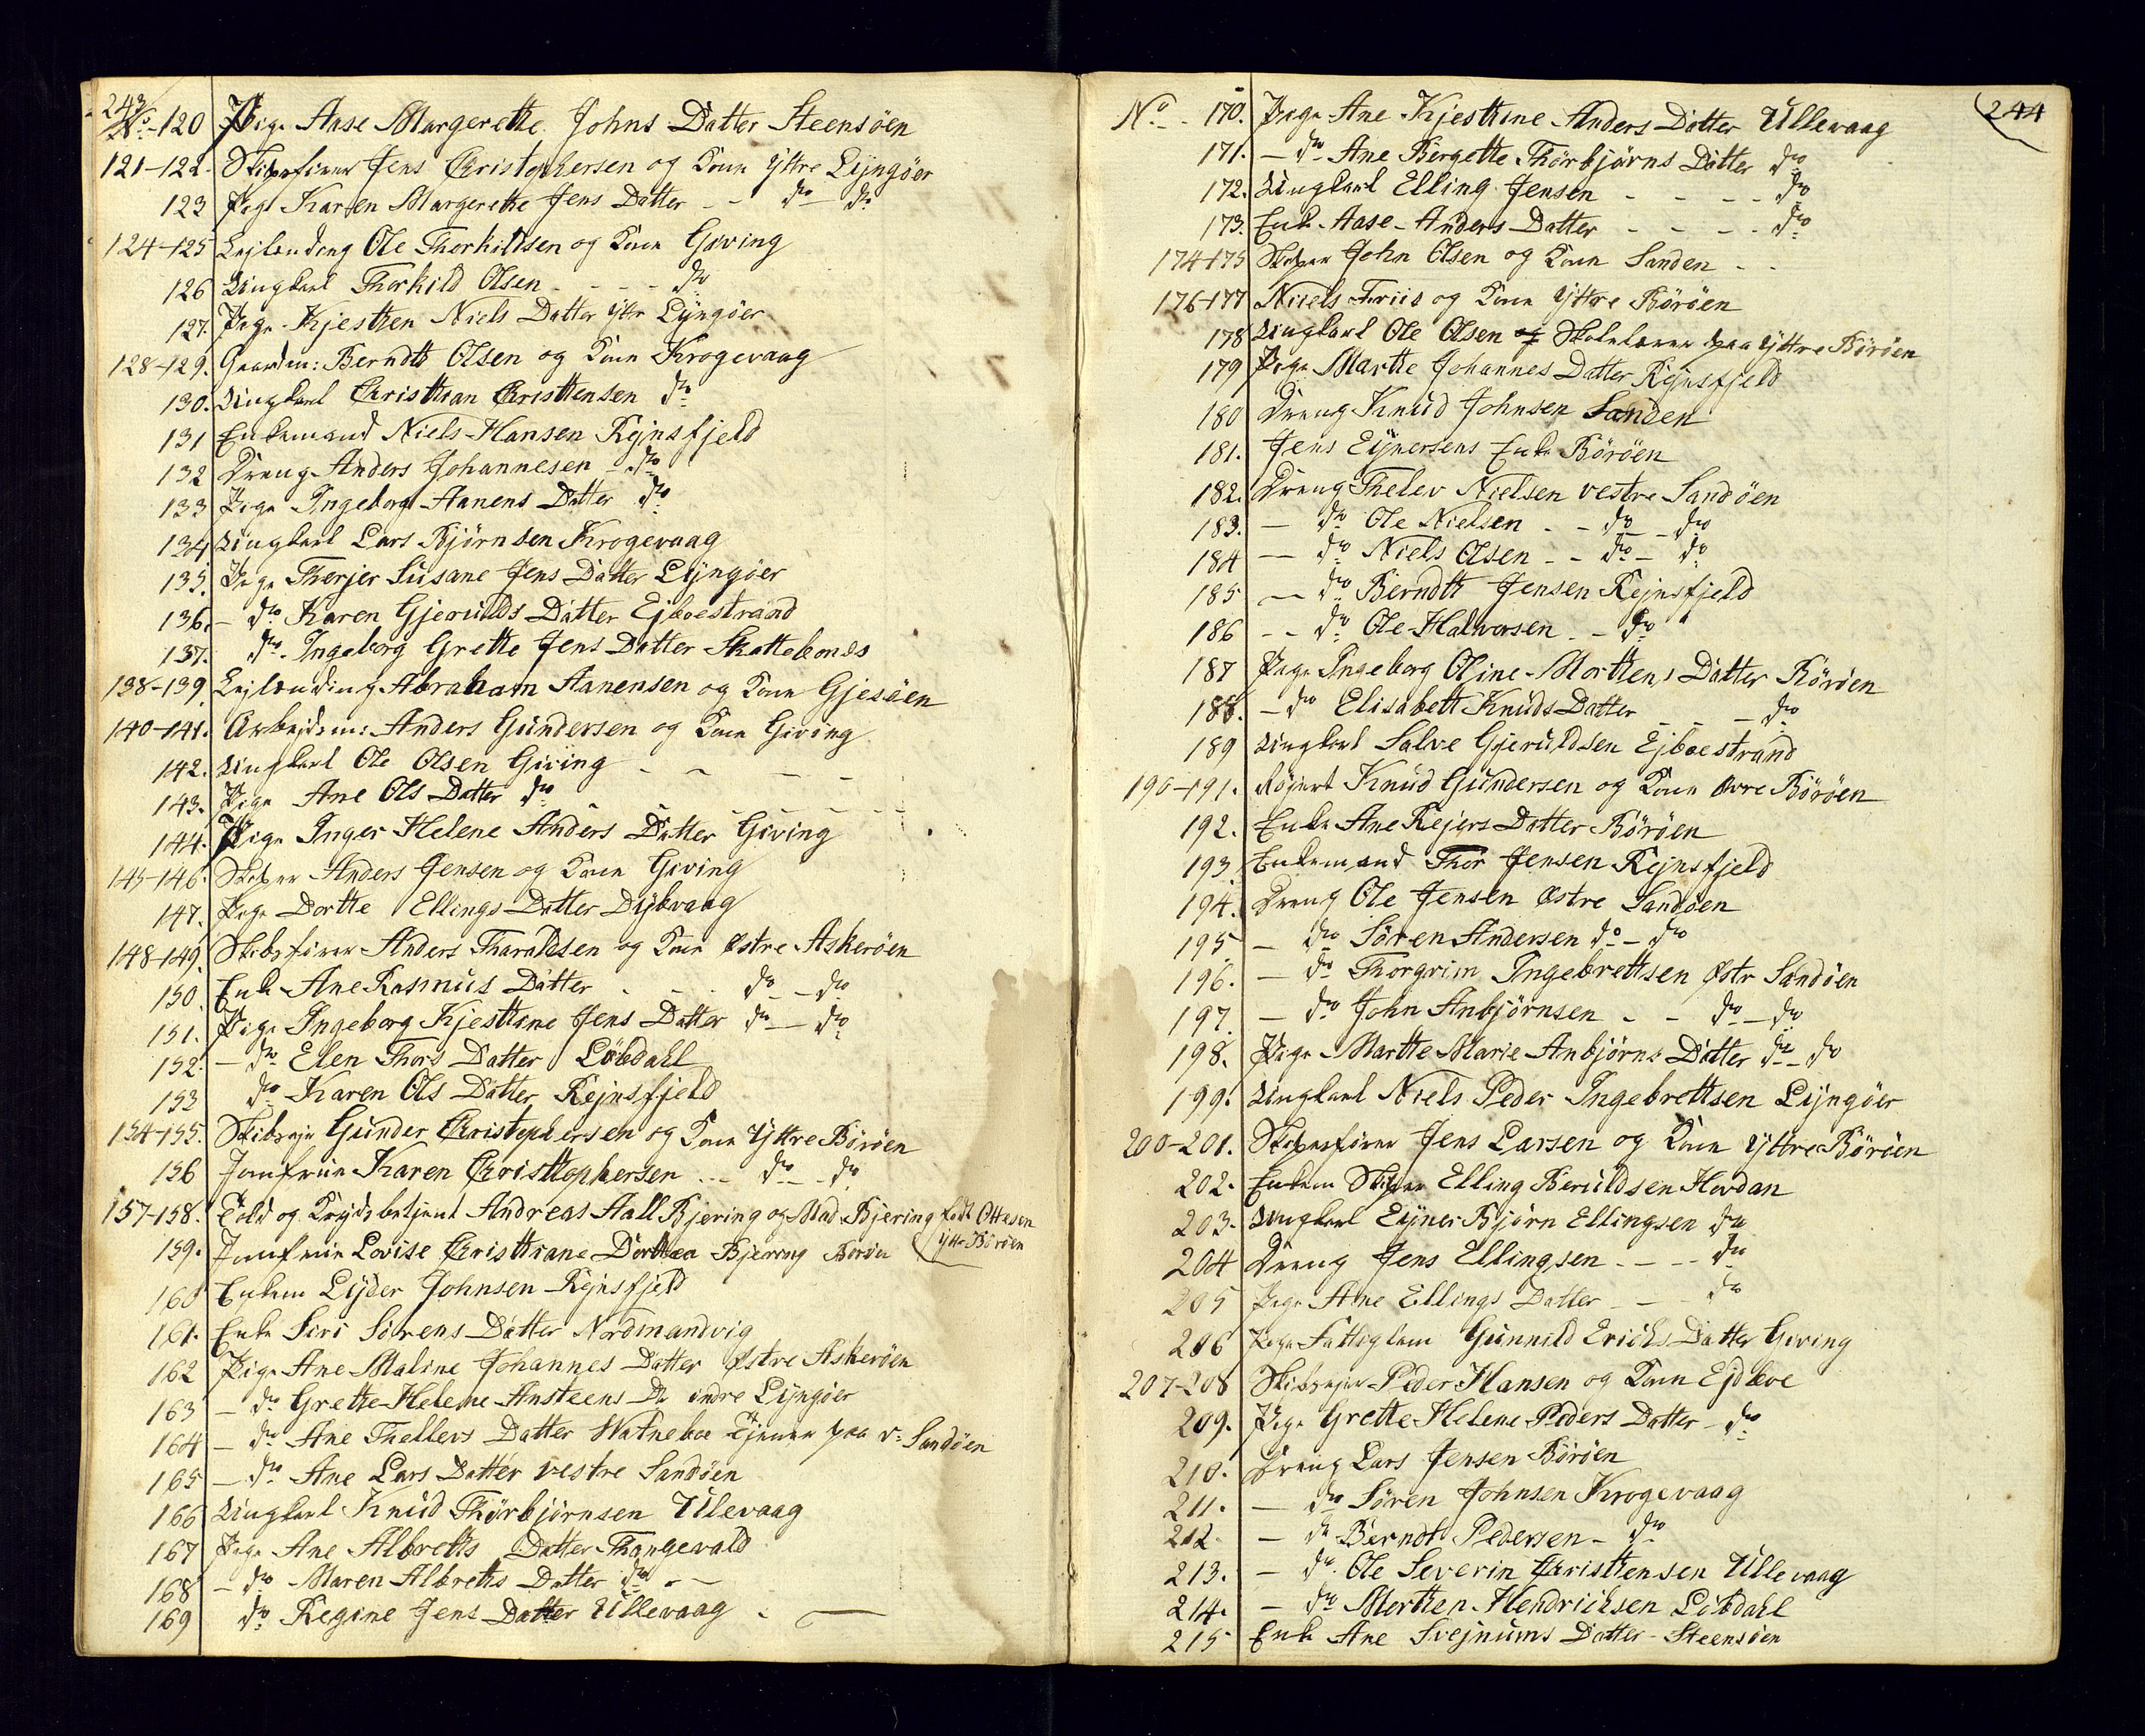 243
No - 120 Pige Aase Margerethe Johns Datter Steensöen
121-122. Skibsfører Jens Christophersen og Kone Yttre Lÿngöer
123 Pige Karen Margerethe Jens Datter - - do - do
124-125 Lejlending Ole Thorkildsen og Kone Gieving
126 Ungkarl Thorkild Olsen - - - - do
127. Pige Kjesthen Niels Datter Yttr Lÿngöer
128-129. Gaardm: Berndth Olsen og Kone Krogevaag
130. Ungkarl Christhan Christhensen do
131 Enkemand Niels Hansen Rejnsfjeld
132 Dreng Anders Johannesen - do
133 Pige Ingeborg Aanens Datter do
134 Ungkarl Lars Bjørnsen Krogevaag
135. Pige Therjer Susane Jens Datter Lÿngöer
136. - do Karen Gjerulds Datter Ejboestrand
137. do Ingeborg Grethe Jens Datter Skottebones
138-139. Lejlending Abraham Aanensen og Kone Gjesöen
140-141. Arbejdsm: Anders Gundersen og Kone Gieving
142. Ungkarl Ole Olsen Gieving - - - -
143. Pige Ane Ols Datter do - - - - - -
144. Pige Inger Helene Anders Datter Gieving
145-146. Skipper Anders Jensen og Kone Gieving
147. Pige Dorthe Ellings Datter Dÿbvaag
148-149. Skibsfører Anders Tharaldsen og Kone Østre Askeröen
150. Enke Ane Rasmus Datter - - - do - do
151. Pige Ingeborg Kjesthine Jens Datter do - do
152. - do Elen Thors Datter Löbdahl
153 do Karen Ols Datter Rejnsfjeld
154-155. Skibseje Gunder Christophersen og Kone Yttre Böröen
156 Jomfrue Karen Christhophersen - - - do - - do
157-158. Told og Krydsbetjent Andreas Aall Bjering og Mad. Bjering født Ottesen
Yttr Böröen
159. Jomfrue Lovise Christhiane Dorthea Bjerring Böröen
160 Enkem Lÿder Johnsen Rejnsfjeld
161. Enke Siri Sörens Datter Nordmandvig
162 Pige Ane Maline Johannes Datter Østre Askeröen
163 - do Grethe Helene Ansteens Dr indre Lÿngöer
164 - do Ane Thellevs Datter Watneboe Tjener paa v: Sandöen
165 - do Ane Lars Datter vestre Sandöen
166 Ungkarl Knud Thörbjörnsen Ulevaag
167 Pige Ane Albreths Datter Thangevald
168 - do Maren Albreths Datter do - -
169 do Regine Jens Datter Ullevaag - -
244
No - 170. Pige Ane Kjesthine Anders Datter Ullevaag
171. - do Ane Bergethe Thörbjörns Datter do
172. Ungkarl Elling Jensen - - - - do
173. Enke Aase Anders Datter - - - - do
174-175 Skipper John Olsen og Kone Sanden - -
176-177 Niels Friis og Kone Yttre Böröen
178 Ungkarl Ole Olsen og Skolelærer paa Yttre Böröen
179 Pige Marthe Johannes Datter Rejnsfjeld
180 Dreng Knud Johnsen Sanden
181. Jens Eÿnersens Enke Böröen
182. Dreng Thelev Nielsen vestre Sandöen
183. - do Ole Nielsen - - do - do
184 - do Niels Olsen - - do - do
185 - do Berndth Jensen Rejnsfjeld
186 - - do Ole Halvorsen - - do
187 Pige Ingeborg Oline Morthens Datter Böröen
188. - do Elisabeth Knuds Datter - - - do
189 Ungkarl Salve Gjeruldsen Ejboestrand
190-191. Knud Gundersen og Kone Øvre Böröen
192. Enke Ane Rejers Datter Böröen
193 Enkemand Thor Jensen Rejnsfjeld
194. Dreng Ole Jensen Østre Sandöen
195 - do Sören Andersen do - do
196. - do Thorgrim Ingebrethsen Østr Sandöen
197. - do John Anbjörnsen - - do - do
198. Pige Marthe Marie Anbjörns Datter do - do
199. Ungkarl Niels Peder Ingebrethsen Lÿngöer
200-201. Skibsfører Jens Larsen og Kone Yttre Böröen
202. Enkem Skipper Elling Beruldsen Hovdan
203. Ungkarl Eÿner Bjørn Ellingsen do
204 Dreng Jens Ellingsen - - - - do
205 Pige Ane Ellings Datter - - do
206 Pige Fattiglem Gunnild Erichs Datter Gieving
207-208 Skibsejer Peder Hansen og Kone Ejdboe
209. Pige Grethe Helene Peders Datter - do
210. Dreng Lars Jensen Böröen
211. - do Sören Johnsen Krogevaag
212 - do Berndt Pedersen - do
213. - do Ole Severin Christhensen Ullevaag
214. - do Morthen Hendrichsen Löbdahl
215 Enke Ane Svejnums Datter - Steensöen